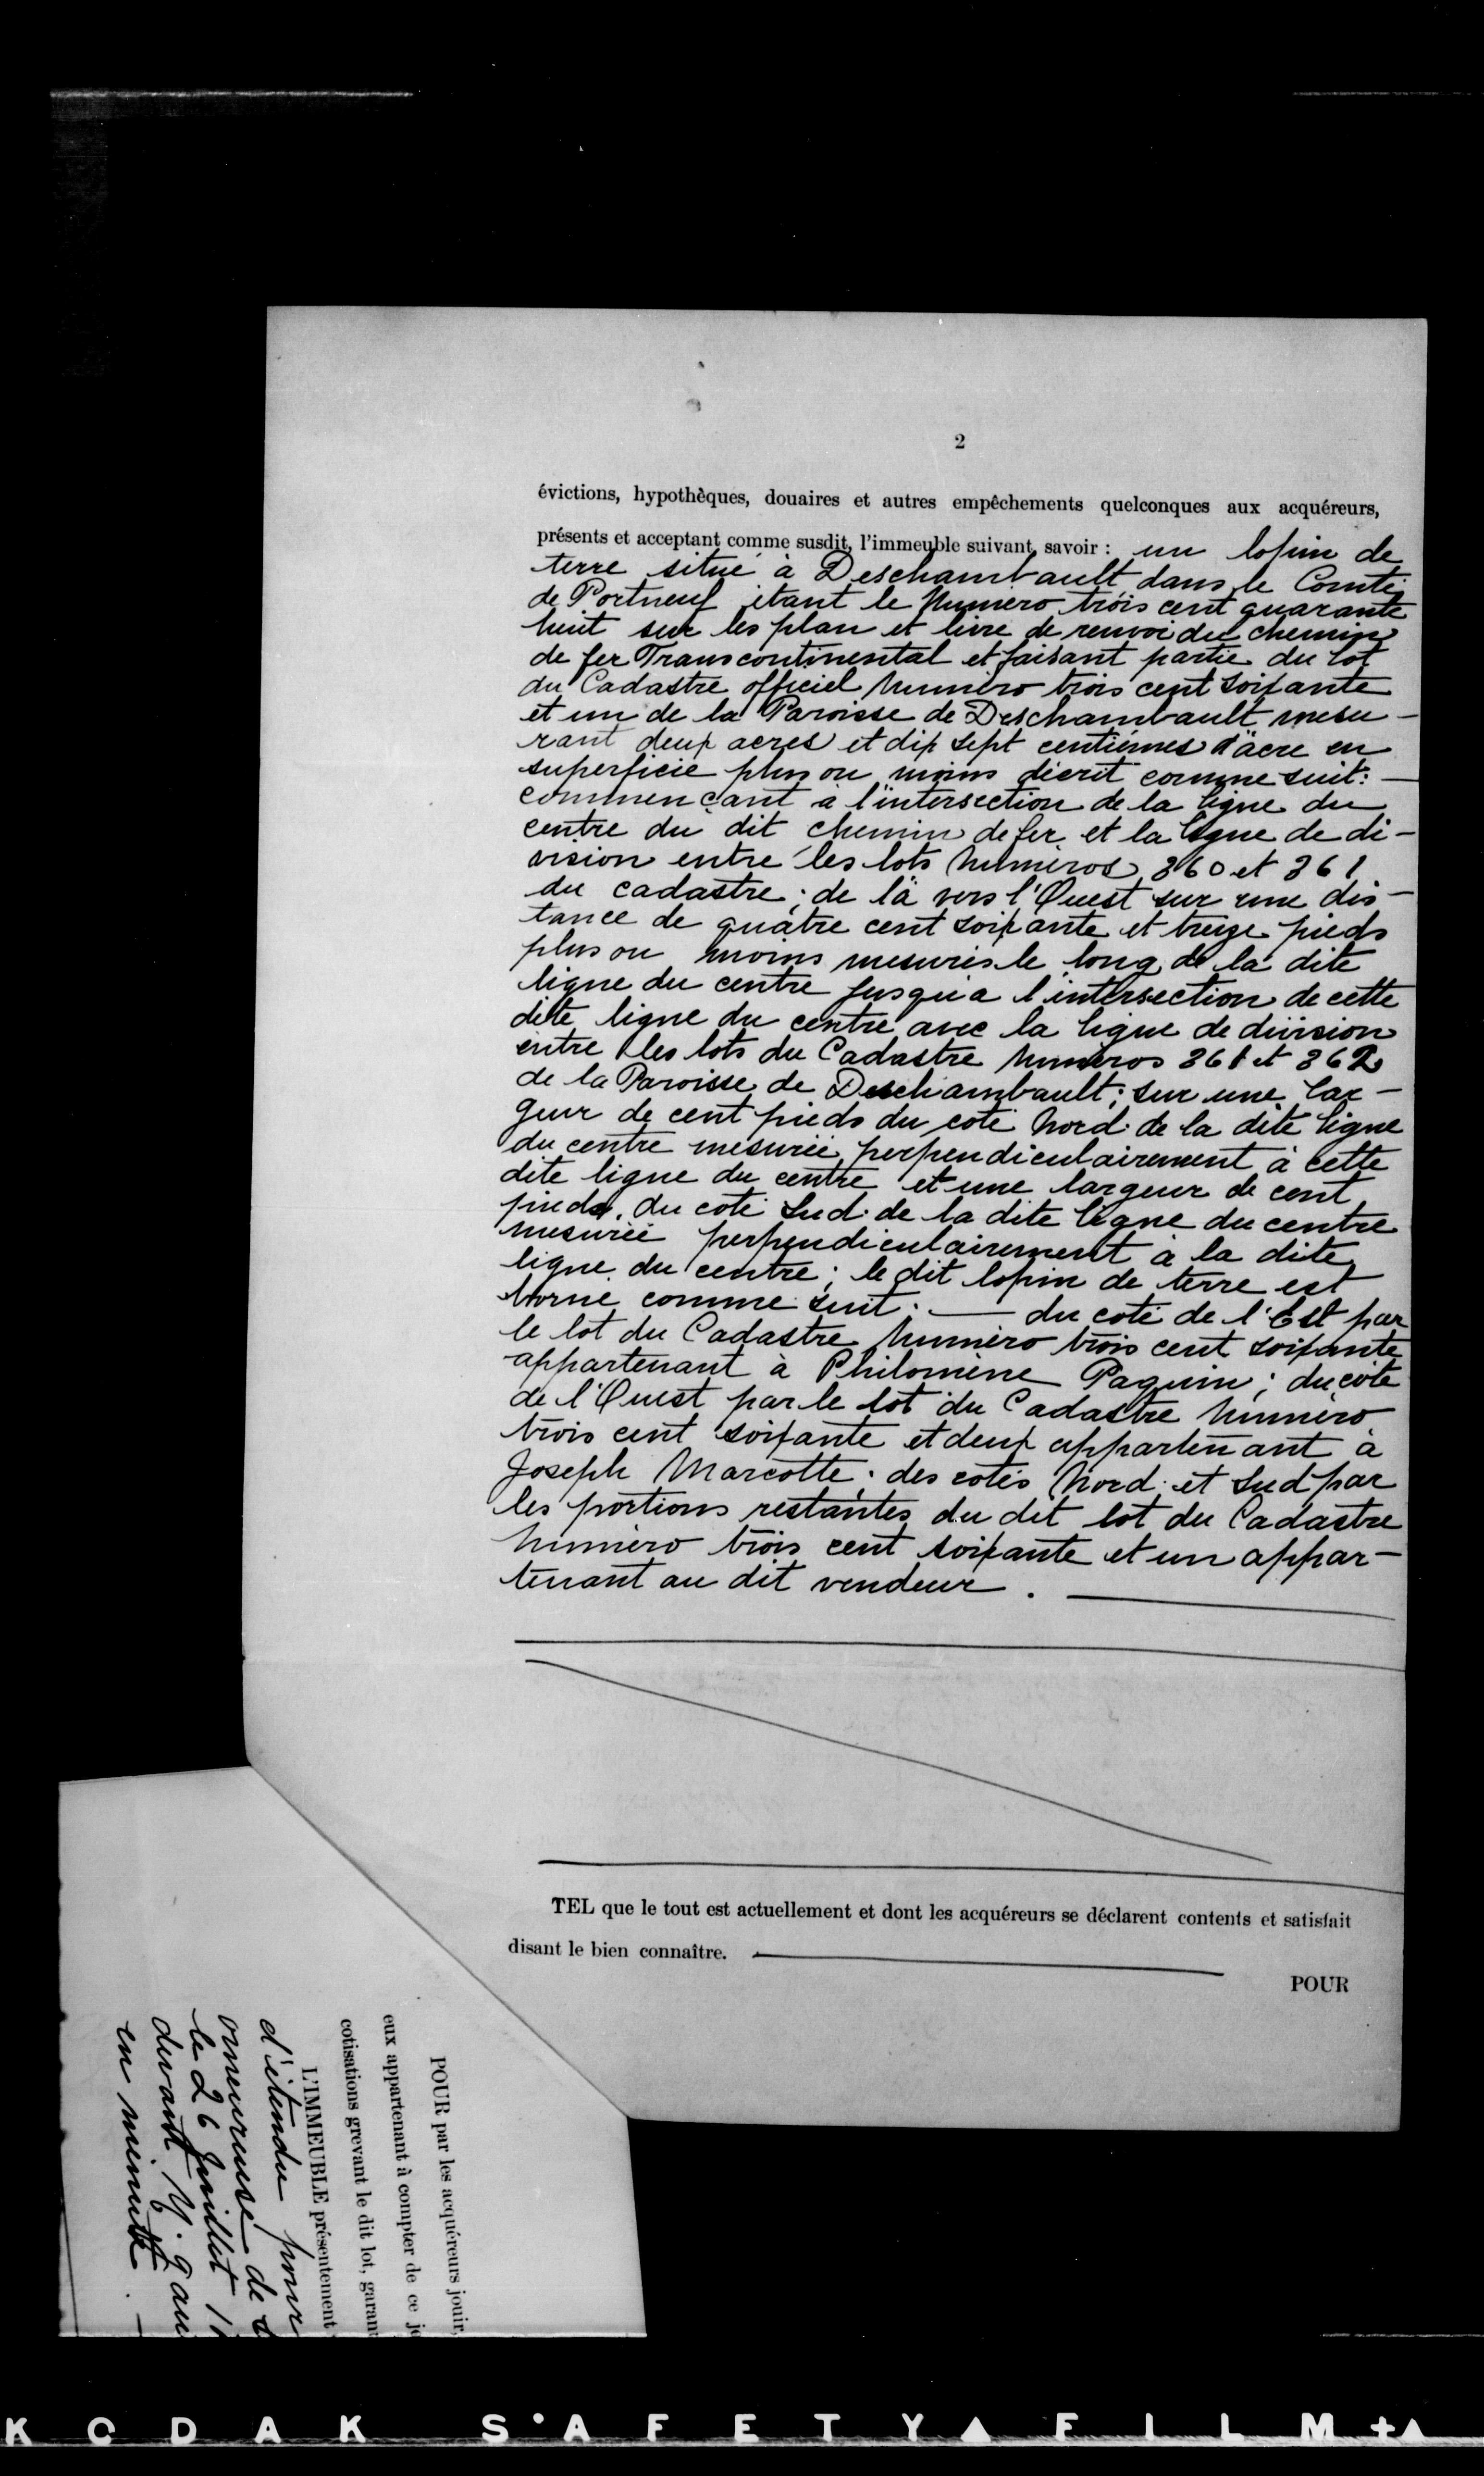 2
évictions, hypothèques, douaires et autres empêchements quelconques aux acquéreurs,
présents et acceptant comme susdit, l'immeuble suivant, savoir : un lopin de
terre situé à Deschambault, dans le Comté
de Portneuf étant le Numéro trois cent quarante
huit sur les plan et livre de renvoi du chemin
de fer Transcontinental et faisant partie du lot
du Cadastre officiel Numéro trois cent soixante
et un de la Paroisse de Deschambault mesu-
rant deux acres et dix sept centièmes d'acre en
superficie plus ou moins décrit comme suit: —
commençant à l'intersection de la ligne du
centre du dit chemin de fer et la ligne de di-
vision entre les lots Numéros 360 et 361
du cadastre; de là vers l'Ouest sur une dis-
tance de quatre cent soixante et treize pieds
plus ou moins mesurés le long de la dite
ligne du centre jusqu'à l'intersection de cette
dite ligne du centre avec la ligne de division
entre les lots du Cadastre Numéros 361 et 362
de la Paroisse de Deschambault; sur une lar-
geur de cent pieds du coté Nord de la dite ligne
du centre mesurée perpendiculairement à cette
dite ligne du centre et une largeur de cent
pieds du coté Sud de la dite ligne du centre
mesurée perpendiculairement à la dite
ligne du centre; le dit lopin de terre est
borné comme suit: — du coté de l'Est par
le lot du Cadastre Numéro trois cent soixante
appartenant à Philomène Paquin; du coté
de l'Ouest par le lot du Cadastre Numéro
trois cent soixante et deux appartenant à
Joseph Marcotte; des cotés Nord et Sud par
les portions restantes du dit lot du Cadastre
Numéro trois cent soixante et un appar-
tenant au dit vendeur. —
TEL que le tout est actuellement et dont les acquéreurs se déclarent contents et satisfait
disant le bien connaître. —
POUR
POUR par les acquéreurs jouir,
eux appartenant à compter de ce
cotisations grevant le dit lot, garan
L'IMMEUBLE présentement
d'étendu pour
de
le 26 Juillet
devant
en minute. —
KODAK S'AFETY▲FILM+▲